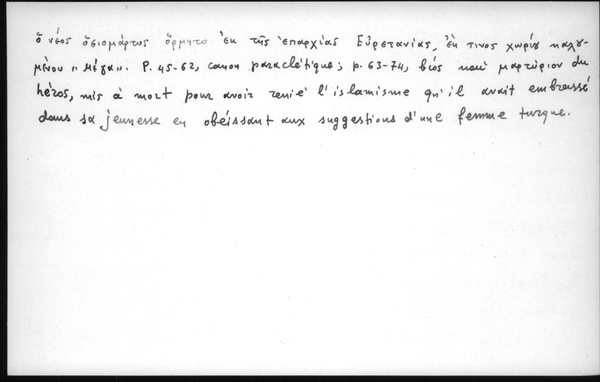 ὁ νέος ὁσιομάρτυς ὅρμητο ἐκ τῆς ἐπαρχίας Εὐρετανίας, ἔκ τινος χωρίου καλου-
μένου "Μέγα". P. 45-62, canon paraclétique; p. 63-74, βίος καὶ μαρτύριον du
héros, mis à mort pour avoir renié l'islamisme qu'il avait embrassé
dans sa jeunesse en obéissant aux suggestions d'une femme turque.